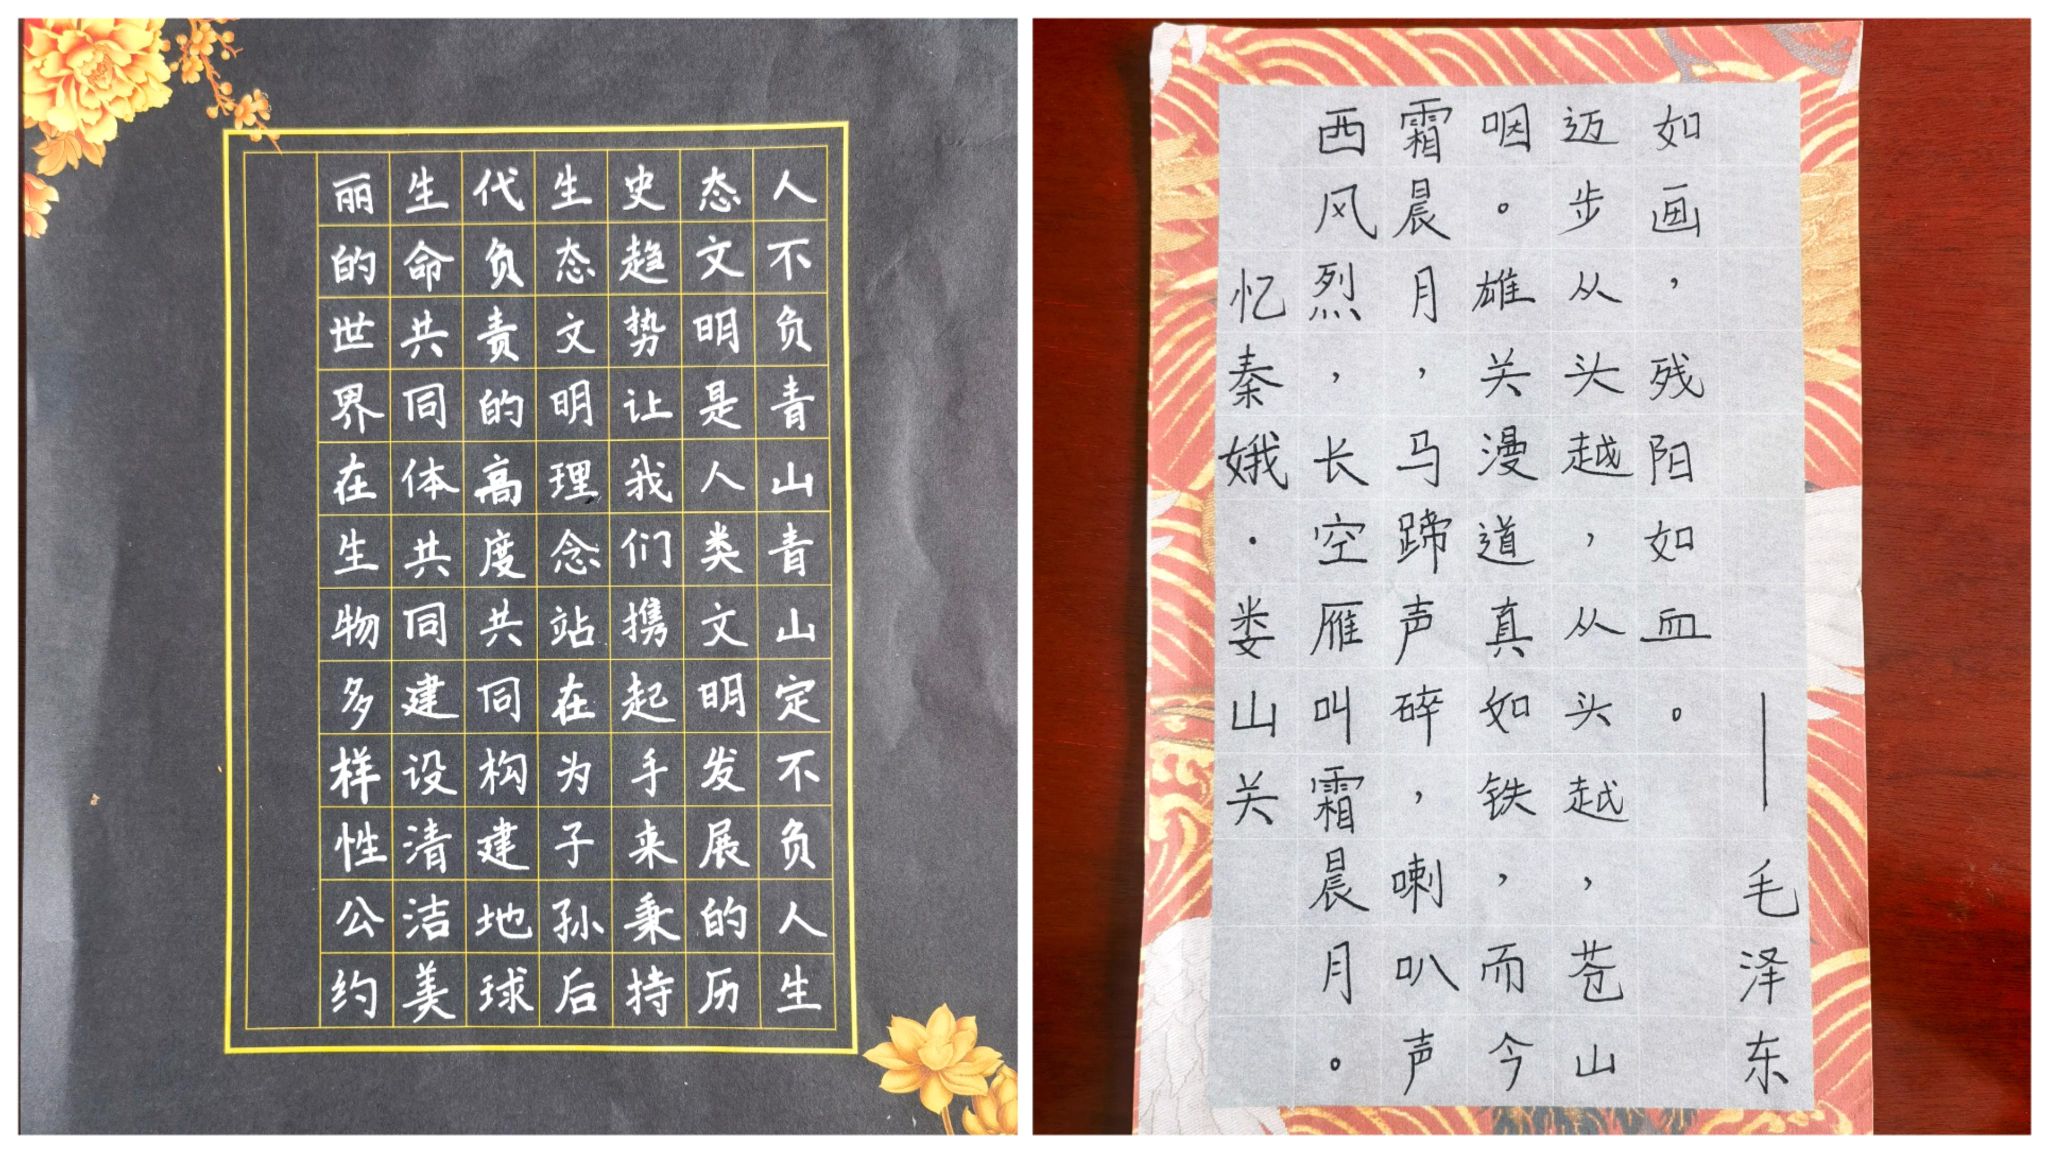 人不负青山青山定不负人生
态文明是人类文明发展的历
史趋势让我们携起手来秉持
生态文明理念站在为子孙后
代负责的高度共同构建地球
生命共同体共同建设清洁美
丽的世界在生物多样性公约
忆秦娥·娄山关
西风烈，长空雁叫霜晨月。
霜晨月，马蹄声碎，喇叭声
咽。雄关漫道真如铁，而今
迈步从头越，从头越，苍山
如画，残阳如血。
——毛泽东